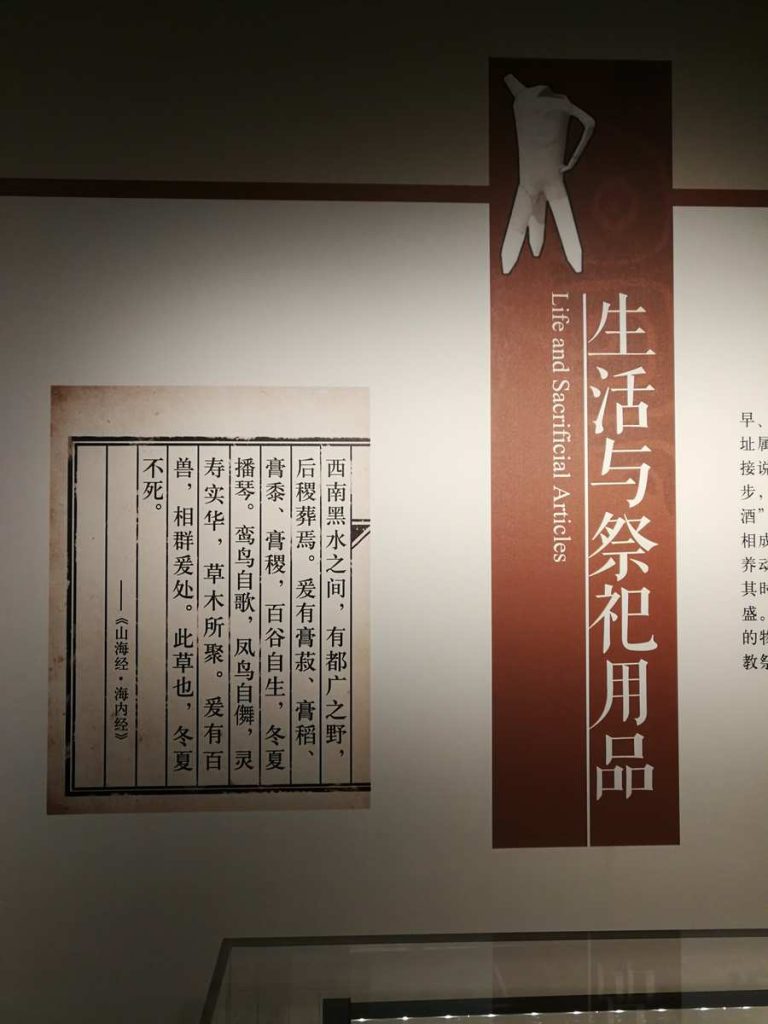 生活与祭祀用品
Life and Sacrificial Articles
西南黑水之间，有都广之野，
后稷葬焉。爰有膏菽、膏稻、
膏黍、膏稷，百谷自生，冬夏
播琴。鸾鸟自歌，凤鸟自儛，灵
寿实华，草木所聚。爰有百
兽，相群爰处。此草也，冬夏
不死。
——《山海经·海内经》
早、
址属
接说
步，
酒”
相成
养动
其时
盛。
的物
教祭